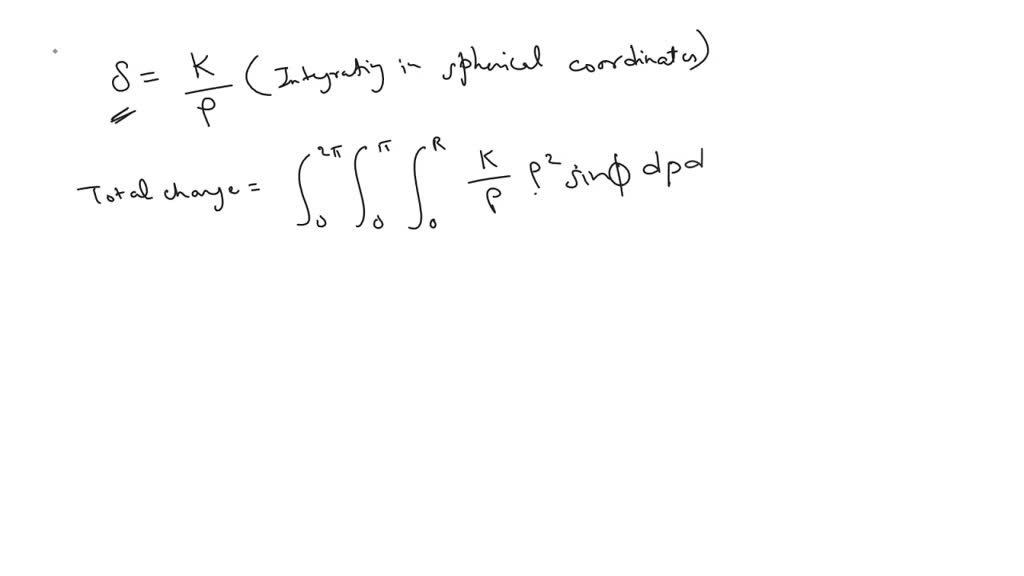 δ = K/ρ (Integrating in spherical coordinates)
Total charge = ∫₀^2π ∫₀^π ∫₀^R K/ρ ρ² sinϕ dρd